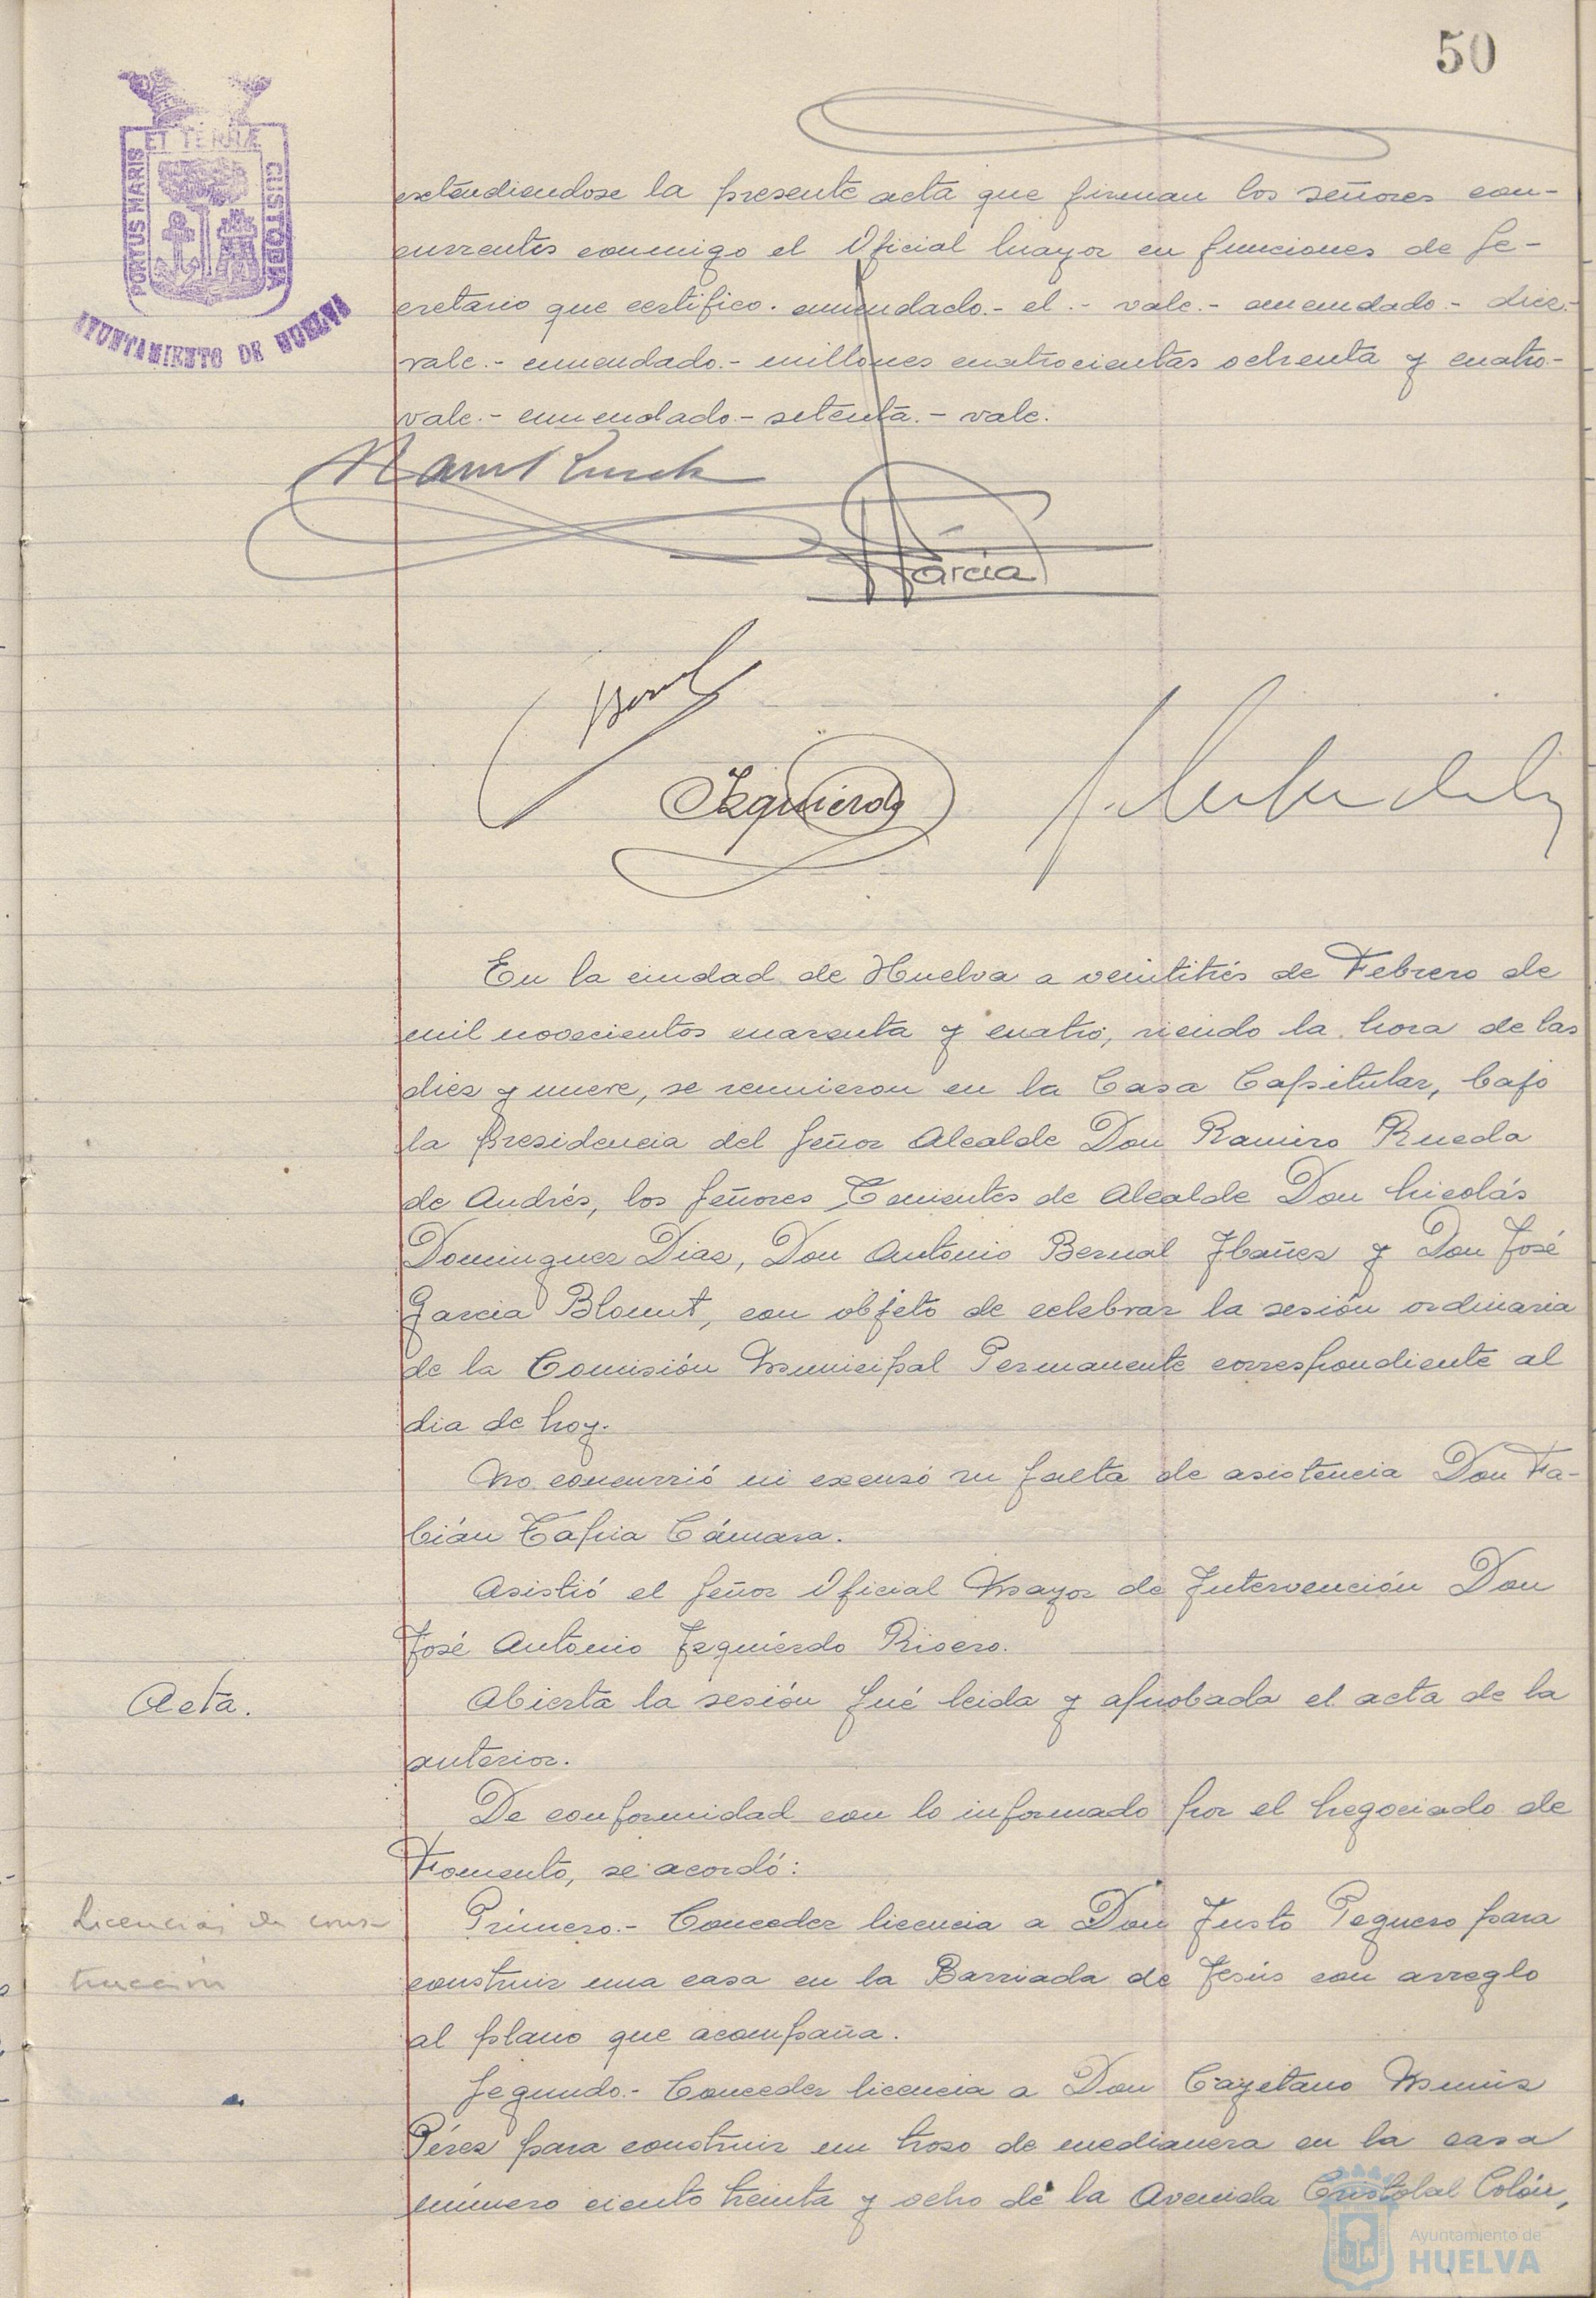 50
ET TERRÆ
PORTUS MARIS
CUSTODIA
AYUNTAMIENTO DE HUELVA
extendiendose la presente acta que firman los señores con-
currentes conmigo el Oficial Mayor en funciones de Se-
cretario que certifico. enmendado.- el.- vale.- enmendado.- diez.-
vale.- enmendado.- millones cuatrocientas ochenta y cuatro-
vale.- enmendado.- setenta.- vale.
García
Izquierdo
En la ciudad de Huelva a veintitrés de Febrero de
mil novecientos cuarenta y cuatro, siendo la hora de las
diez y nueve, se reunieron en la Casa Capitular, bajo
la Presidencia del Señor Alcalde Don Ramiro Rueda
de Andrés, los Señores Tenientes de Alcalde Don Nicolás
Dominguez Diaz, Don Antonio Bernal Ibañez y Don José
Garcia Blount, con objeto de celebrar la sesión ordinaria
de la Comisión Municipal Permanente correspondiente al
dia de hoy.
No concurrió ni excusó su falta de asistencia Don Fa-
bián Tapia Cámara.
Asistió el Señor Oficial Mayor de Intervención Don
José Antonio Izquierdo Rivero.
Acta.
Abierta la sesión fué leida y aprobada el acta de la
anterior.
De conformidad con lo informado por el Negociado de
Fomento, se acordó:
Licencias de cons-
trucción
Primero.- Conceder licencia a Don Justo Peguero para
construir una casa en la Barriada de Jesús con arreglo
al plano que acompaña.
Segundo.- Conceder licencia a Don Cayetano Muñiz
Pérez para construir un trozo de medianera en la casa
número ciento treinta y ocho de la Avenida Cristobal Colón,
Ayuntamiento de
HUELVA